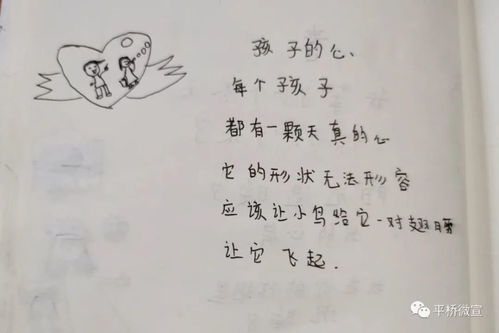 孩子的心、
每个孩子
都有一颗天真的心
它的形状无法形容
应该让小鸟给它一对翅膀
让它飞起.
平桥微宣